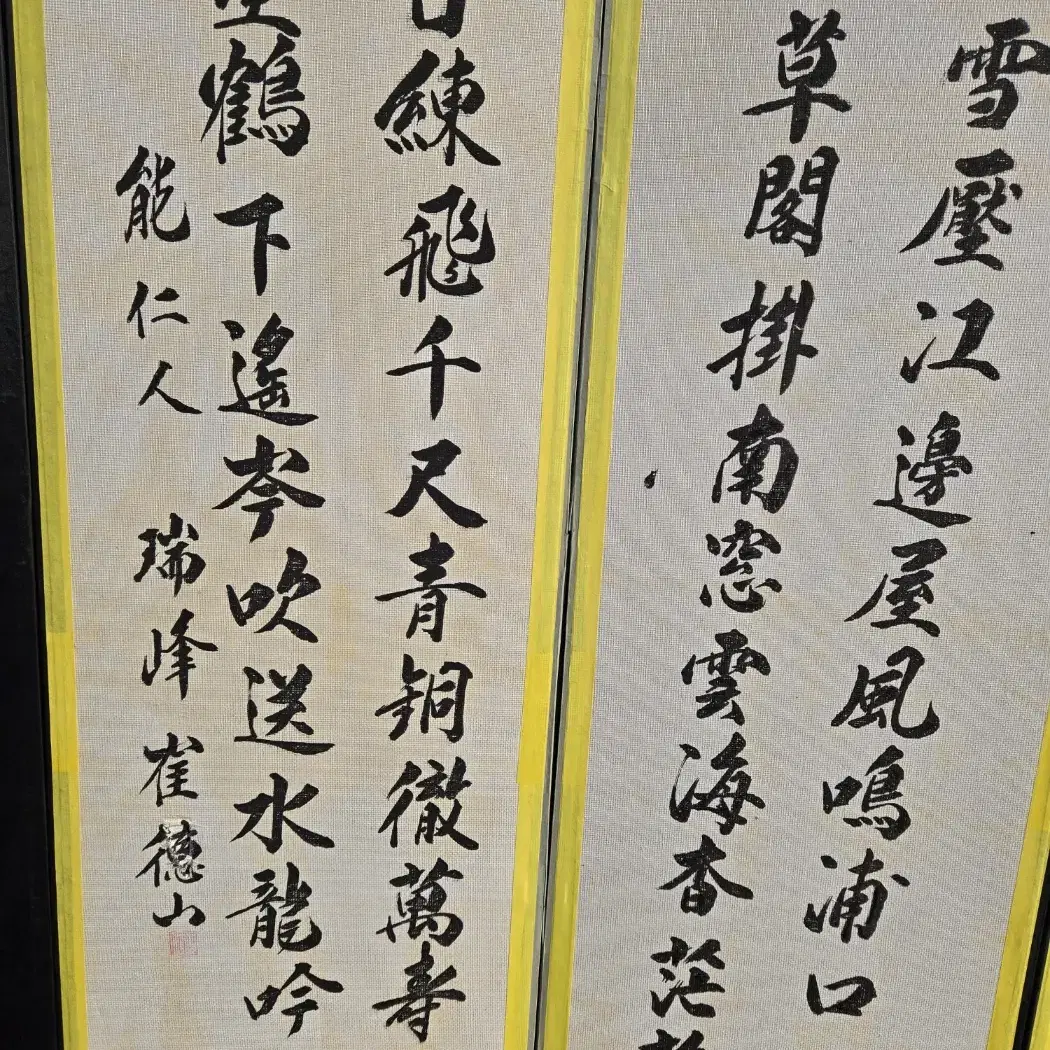 雪壓江邊屋風鳴浦口
草閣掛南窓雲海杳茫
練飛千尺青銅徹萬尋
鶴下遙岑吹送水龍吟
能仁人 瑞峰 崔德山